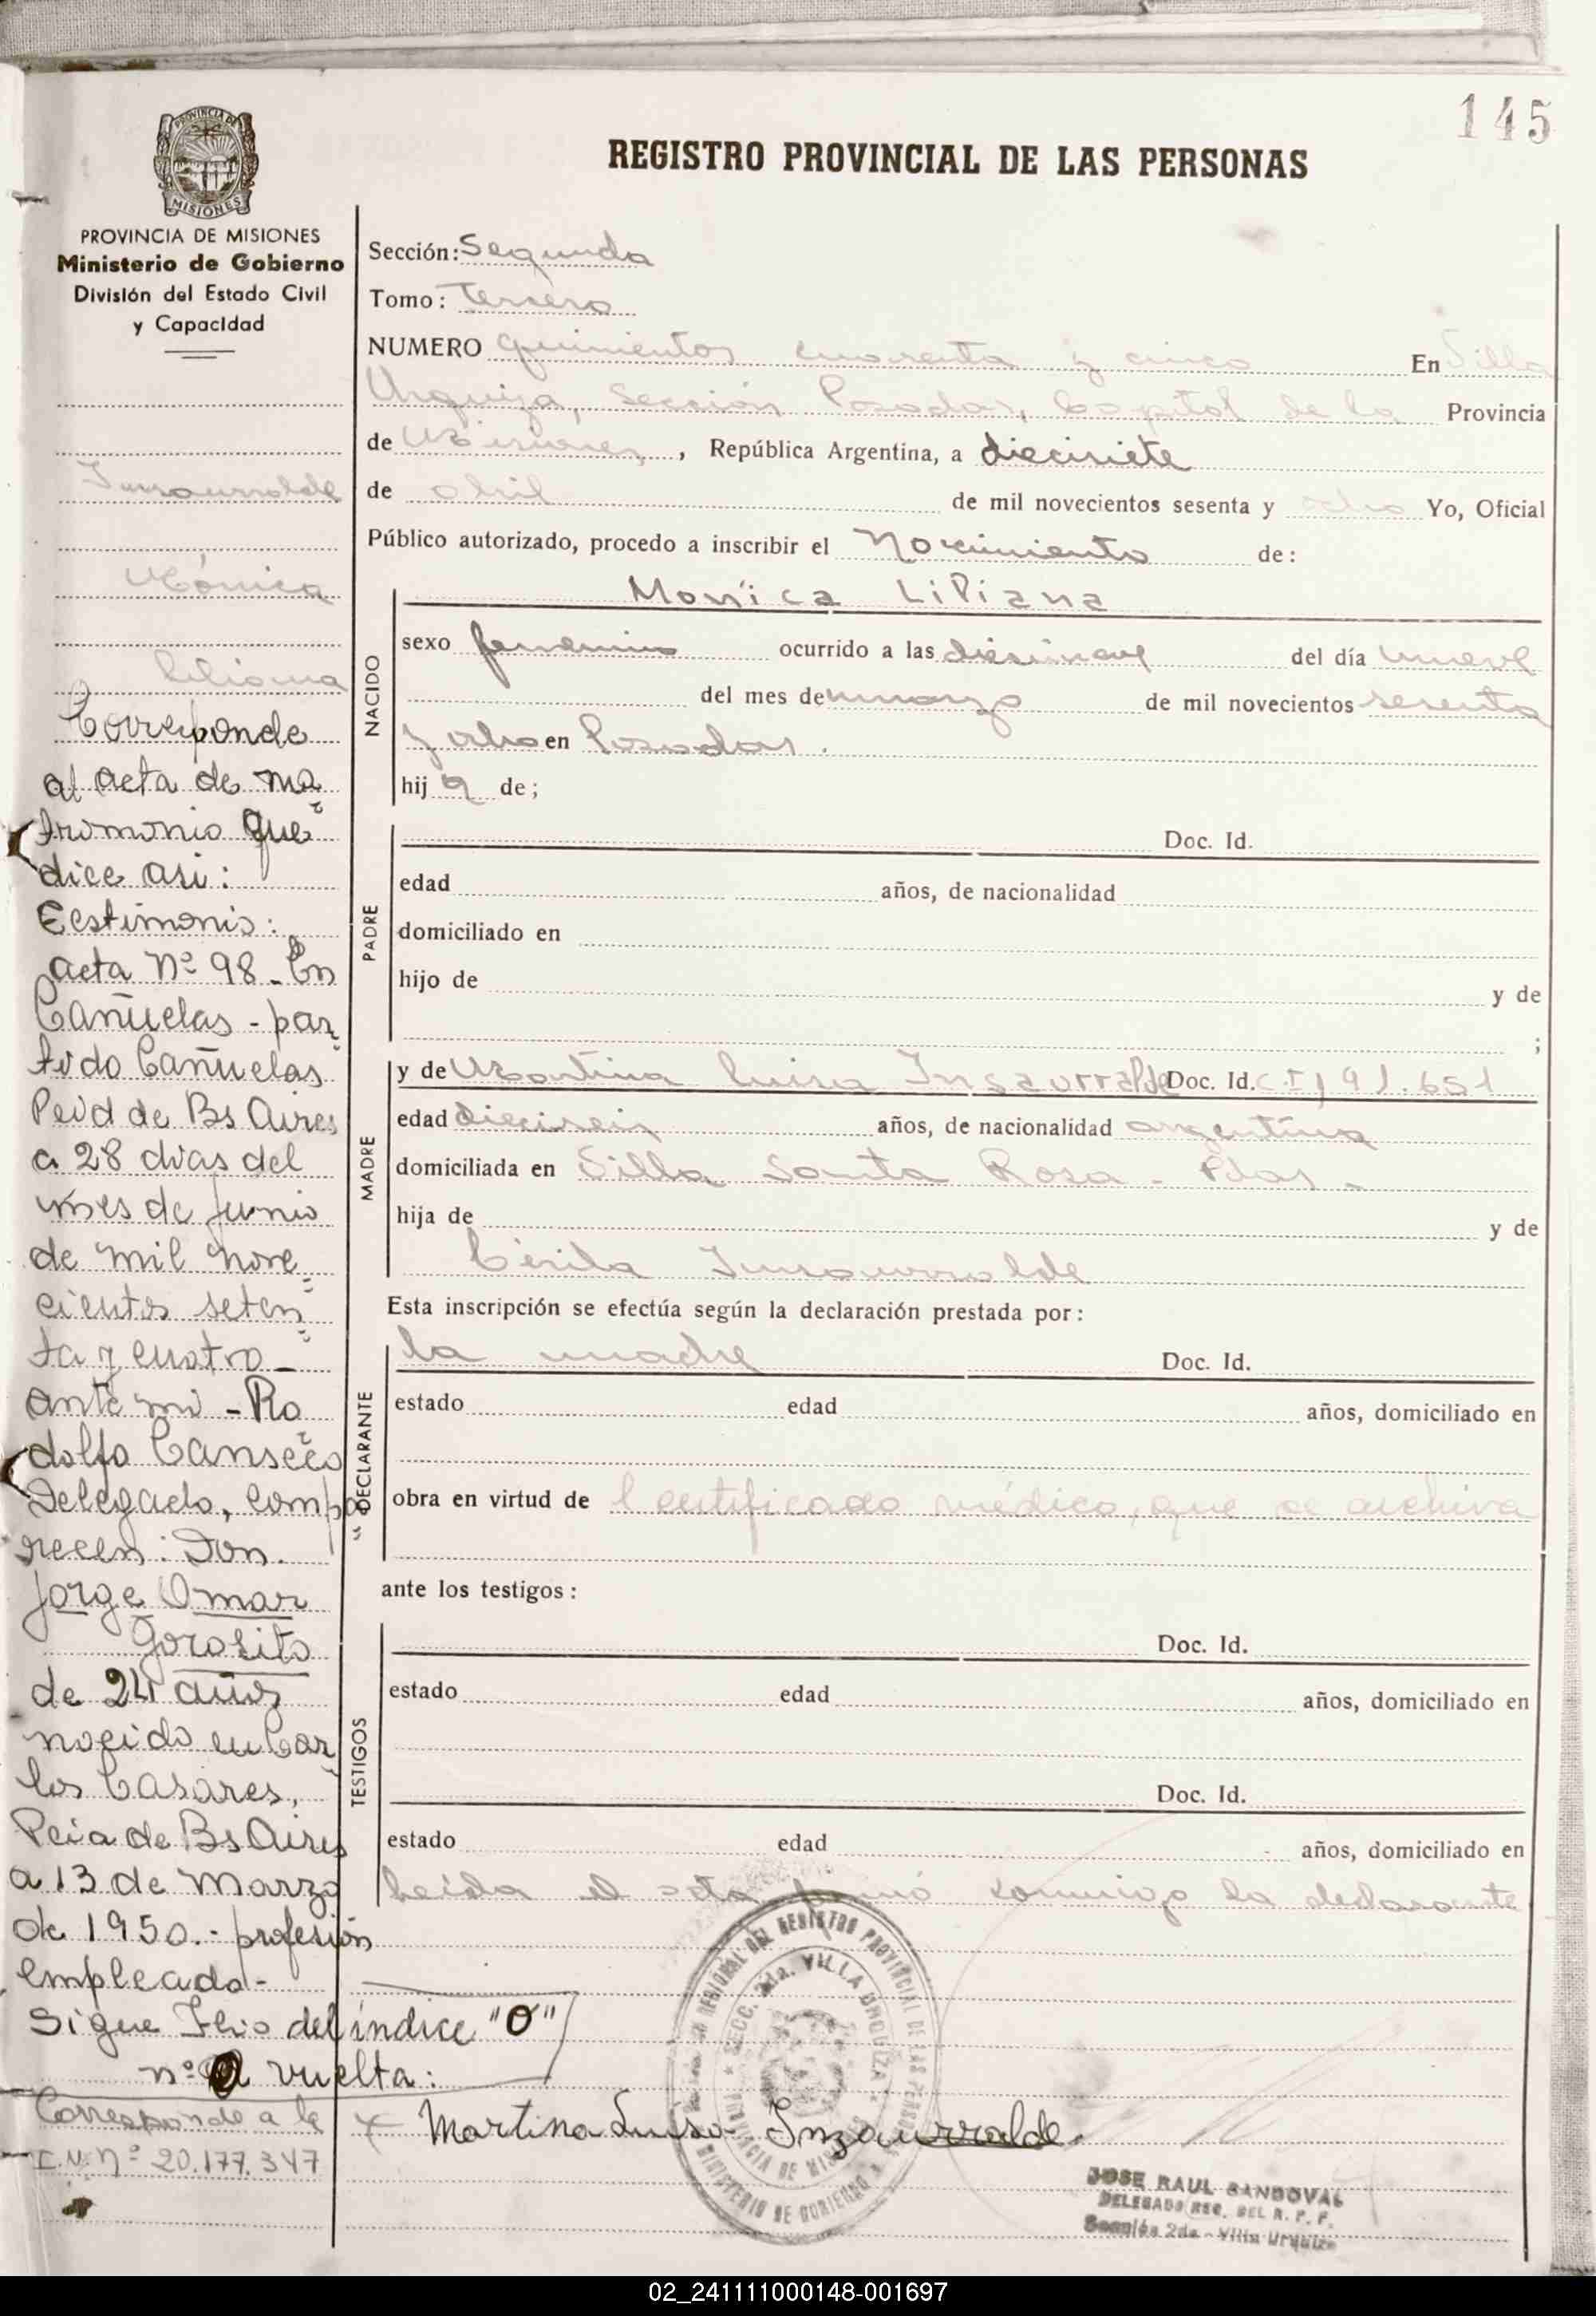 145
REGISTRO PROVINCIAL DE LAS PERSONAS
PROVINCIA DE
MISIONES
PROVINCIA DE MISIONES
Ministerio de Gobierno
División del Estado Civil
y Capacidad
Insaurralde
Mónica
Liliana
Corresponde
al acta de ma
trimonio que
dice asi:
Testimonio:
acta Nº 98 - En
Cañuelas - par
tido Cañuelas
Pcia de Bs Aires
a 28 dias del
mes de Junio
de mil nove
cientos seten
ta y cuatro -
ante mi - Ro
dolfo Canseco
Delegado, compa
recen: Don.
Jorge Omar
Gorosito
de 24 años
nacido en Car
los Casares,
Pcia de Bs Aires
a 13 de Marzo
de 1950.- profesión
empleado -
Sigue Folio del índice "O"
nº vuelta:
Corresponde a la
nº 20.177.347
Sección: Segunda
Tomo: Tercero
NUMERO quinientos cuarenta y cinco En Villa
Urquiza, Sección Posadas, Capital de la Provincia
de Misiones, , República Argentina, a diecisiete
de abril de mil novecientos sesenta y ocho Yo, Oficial
Público autorizado, procedo a inscribir el Nacimiento de:
NACIDO
Monica Liliana
sexo femenino ocurrido a las diecinueve del día nueve
del mes de marzo de mil novecientos sesenta
y ocho en Posadas.
hij a de;
PADRE
Doc. Id.
edad años, de nacionalidad
domiciliado en
hijo de y de
;
MADRE
y de Martina Luisa Insaurralde Doc. Id. C.I) 91.651
edad dieciseis años, de nacionalidad argentina
domiciliada en Villa Santa Rosa - Pdas -
hija de y de
Cirila Insaurralde
Esta inscripción se efectúa según la declaración prestada por:
DECLARANTE
la madre Doc. Id.
estado edad años, domiciliado en
obra en virtud de l certificado médico, que se archiva
ante los testigos:
TESTIGOS
Doc. Id.
estado edad años, domiciliado en
Doc. Id.
estado edad años, domiciliado en
Leída el acta firmó conmigo la declarante
REGIONAL DEL REGISTRO PROVINCIAL DE LAS PERSONAS
SECC. 2da. VILLA URQUIZA
PROVINCIA DE MISIONES
MINISTERIO DE GOBIERNO
Martina Luisa Inzaurralde.
JOSE RAUL SANDOVAL
DELEGADO REG. DEL R. P. P.
Sección 2da - Villa Urquiza
02_241111000148-001697